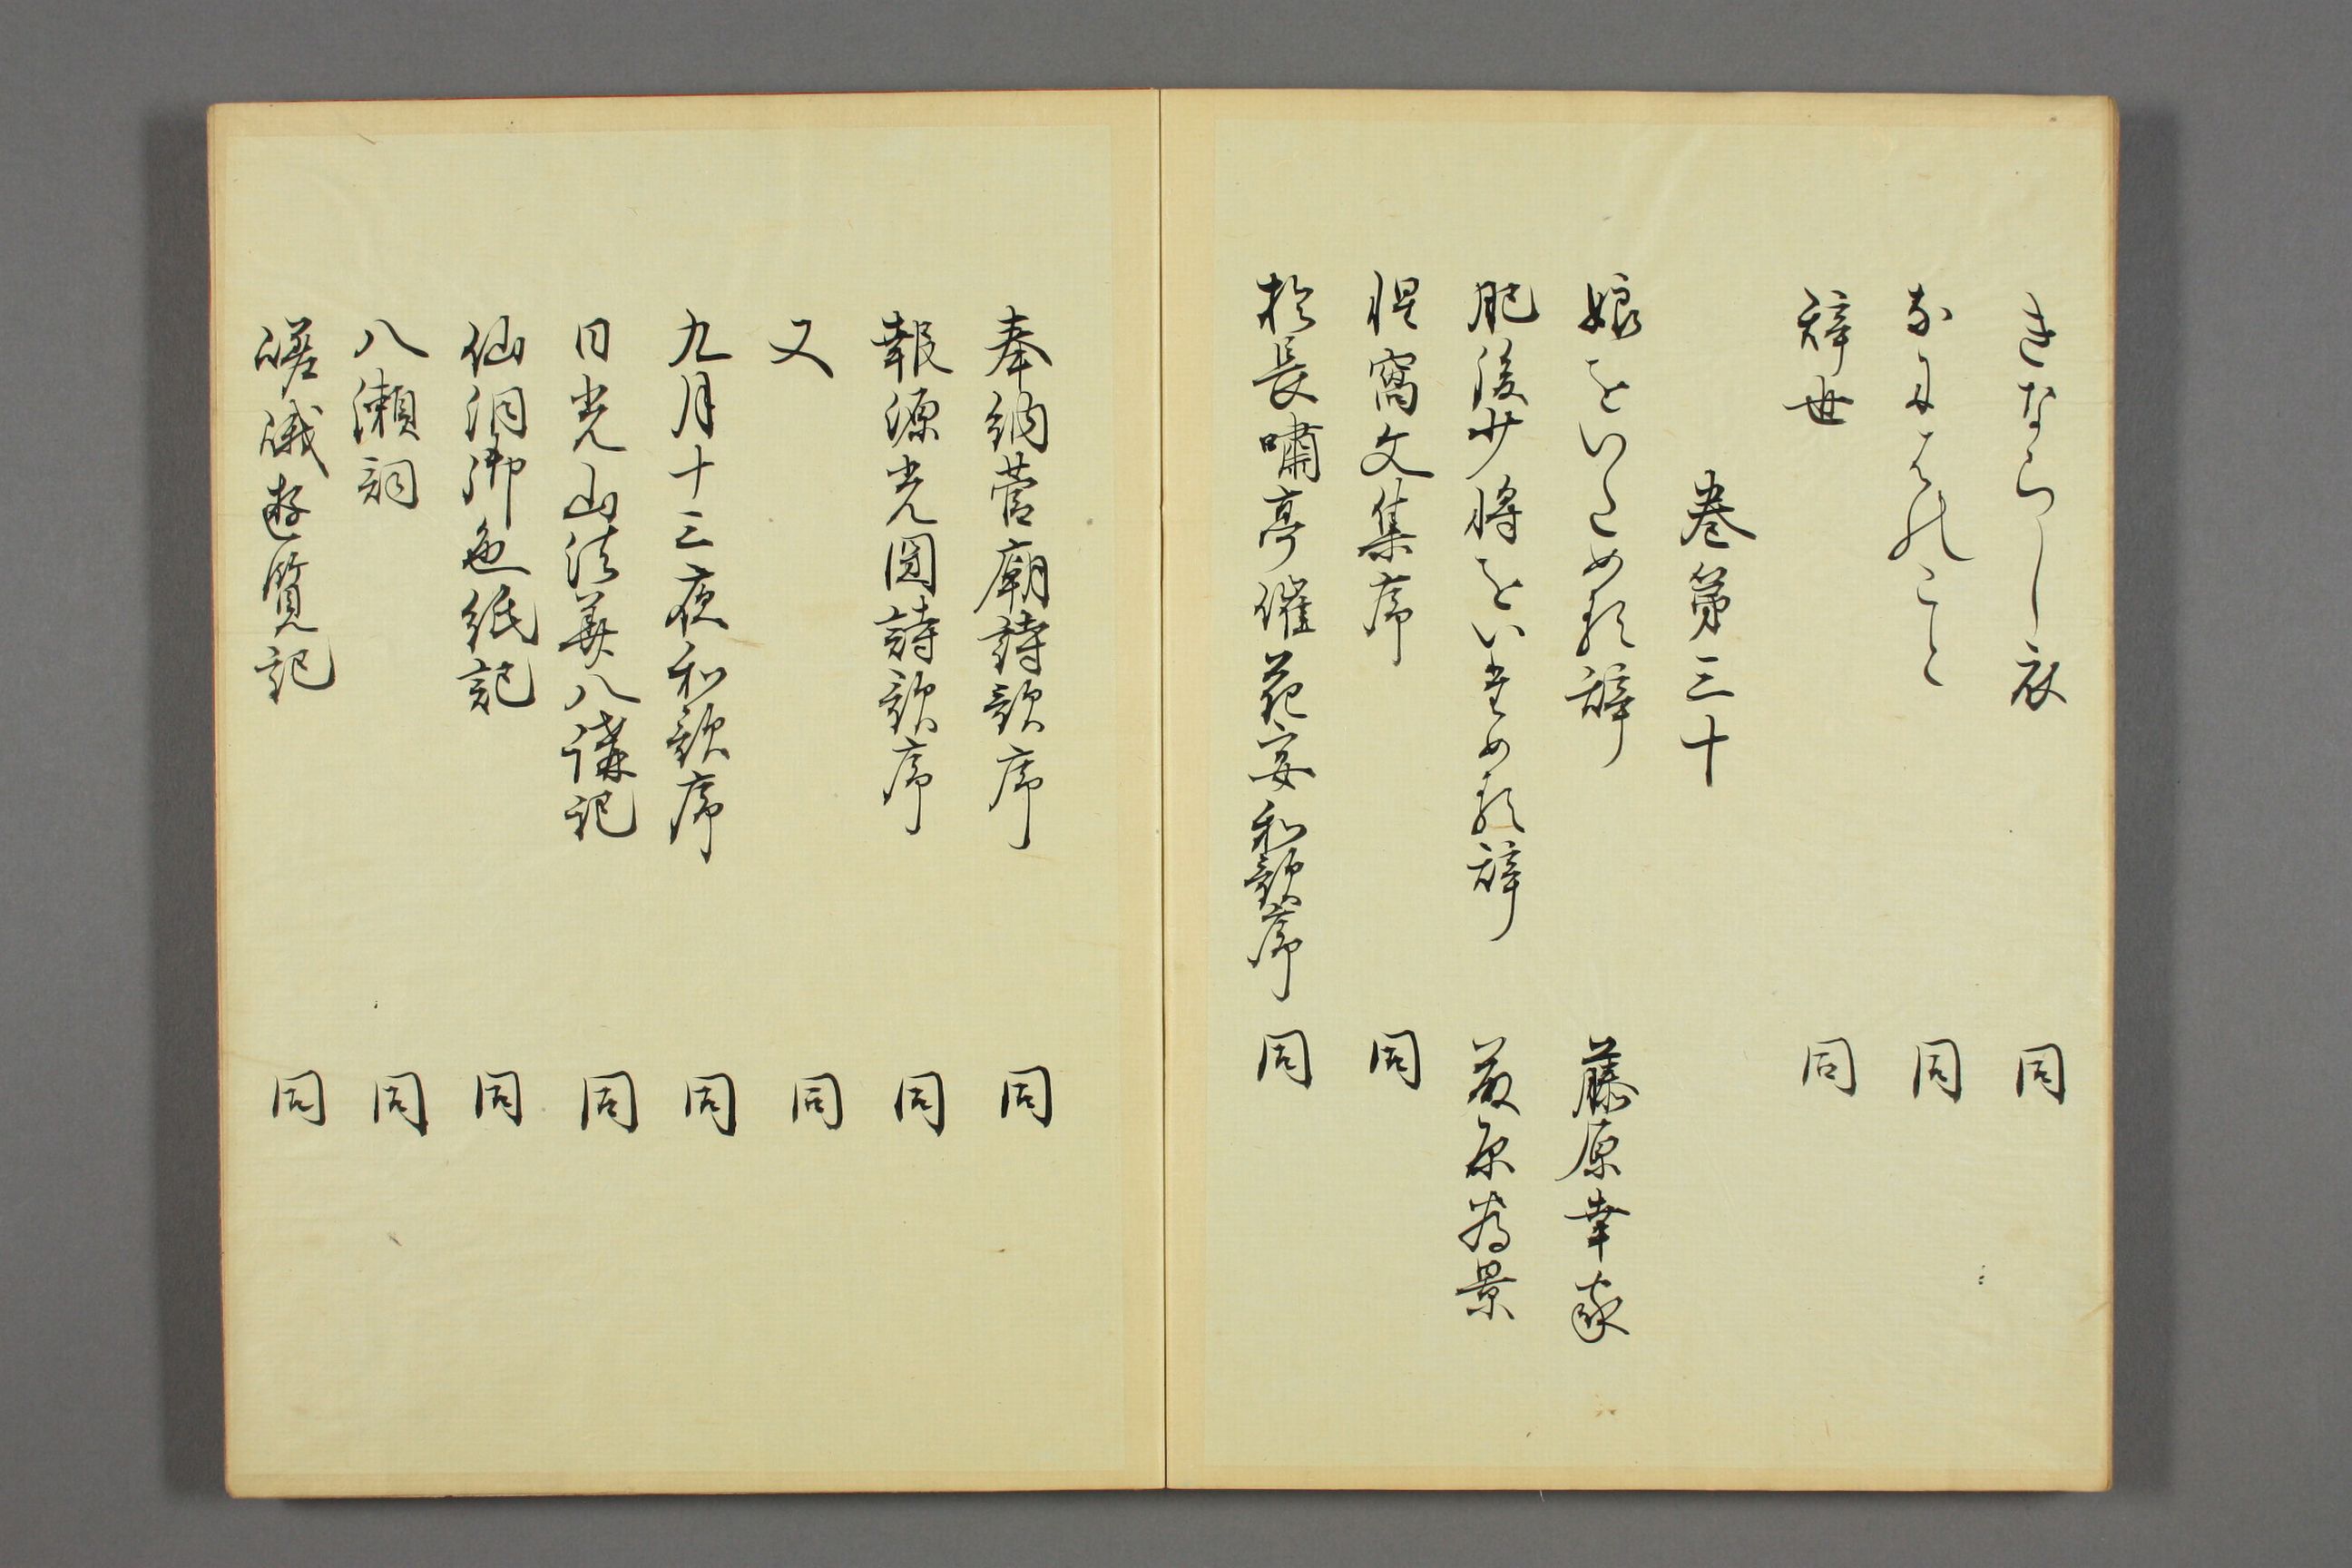 きならし衣 同
なにはのこと 同
辞世 同
巻第三十
娘をいためる辞 藤原幸家
肥後少将をいためる辞 藤原為景
惺窩文集序 同
於長嘯亭催花宴和歌序 同
奉納菅廟詩歌序 同
報源光圀詩歌序 同
又 同
九月十三夜和歌序 同
日光山法華八講記 同
仙洞御色紙記 同
八瀬詞 同
嵯峨遊覧記 同